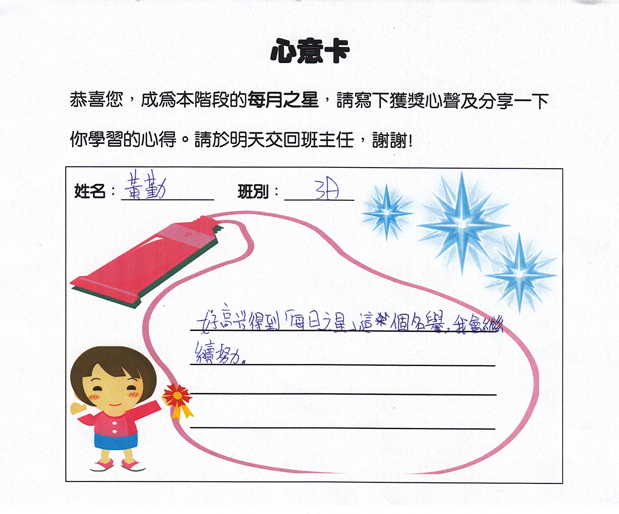 心意卡
恭喜您，成為本階段的每月之星，請寫下獲獎心聲及分享一下
你學習的心得。請於明天交回班主任，謝謝!
姓名：黃勤 班別：3A
好高兴得到「每日之星」這個名譽，我會繼
續努力。